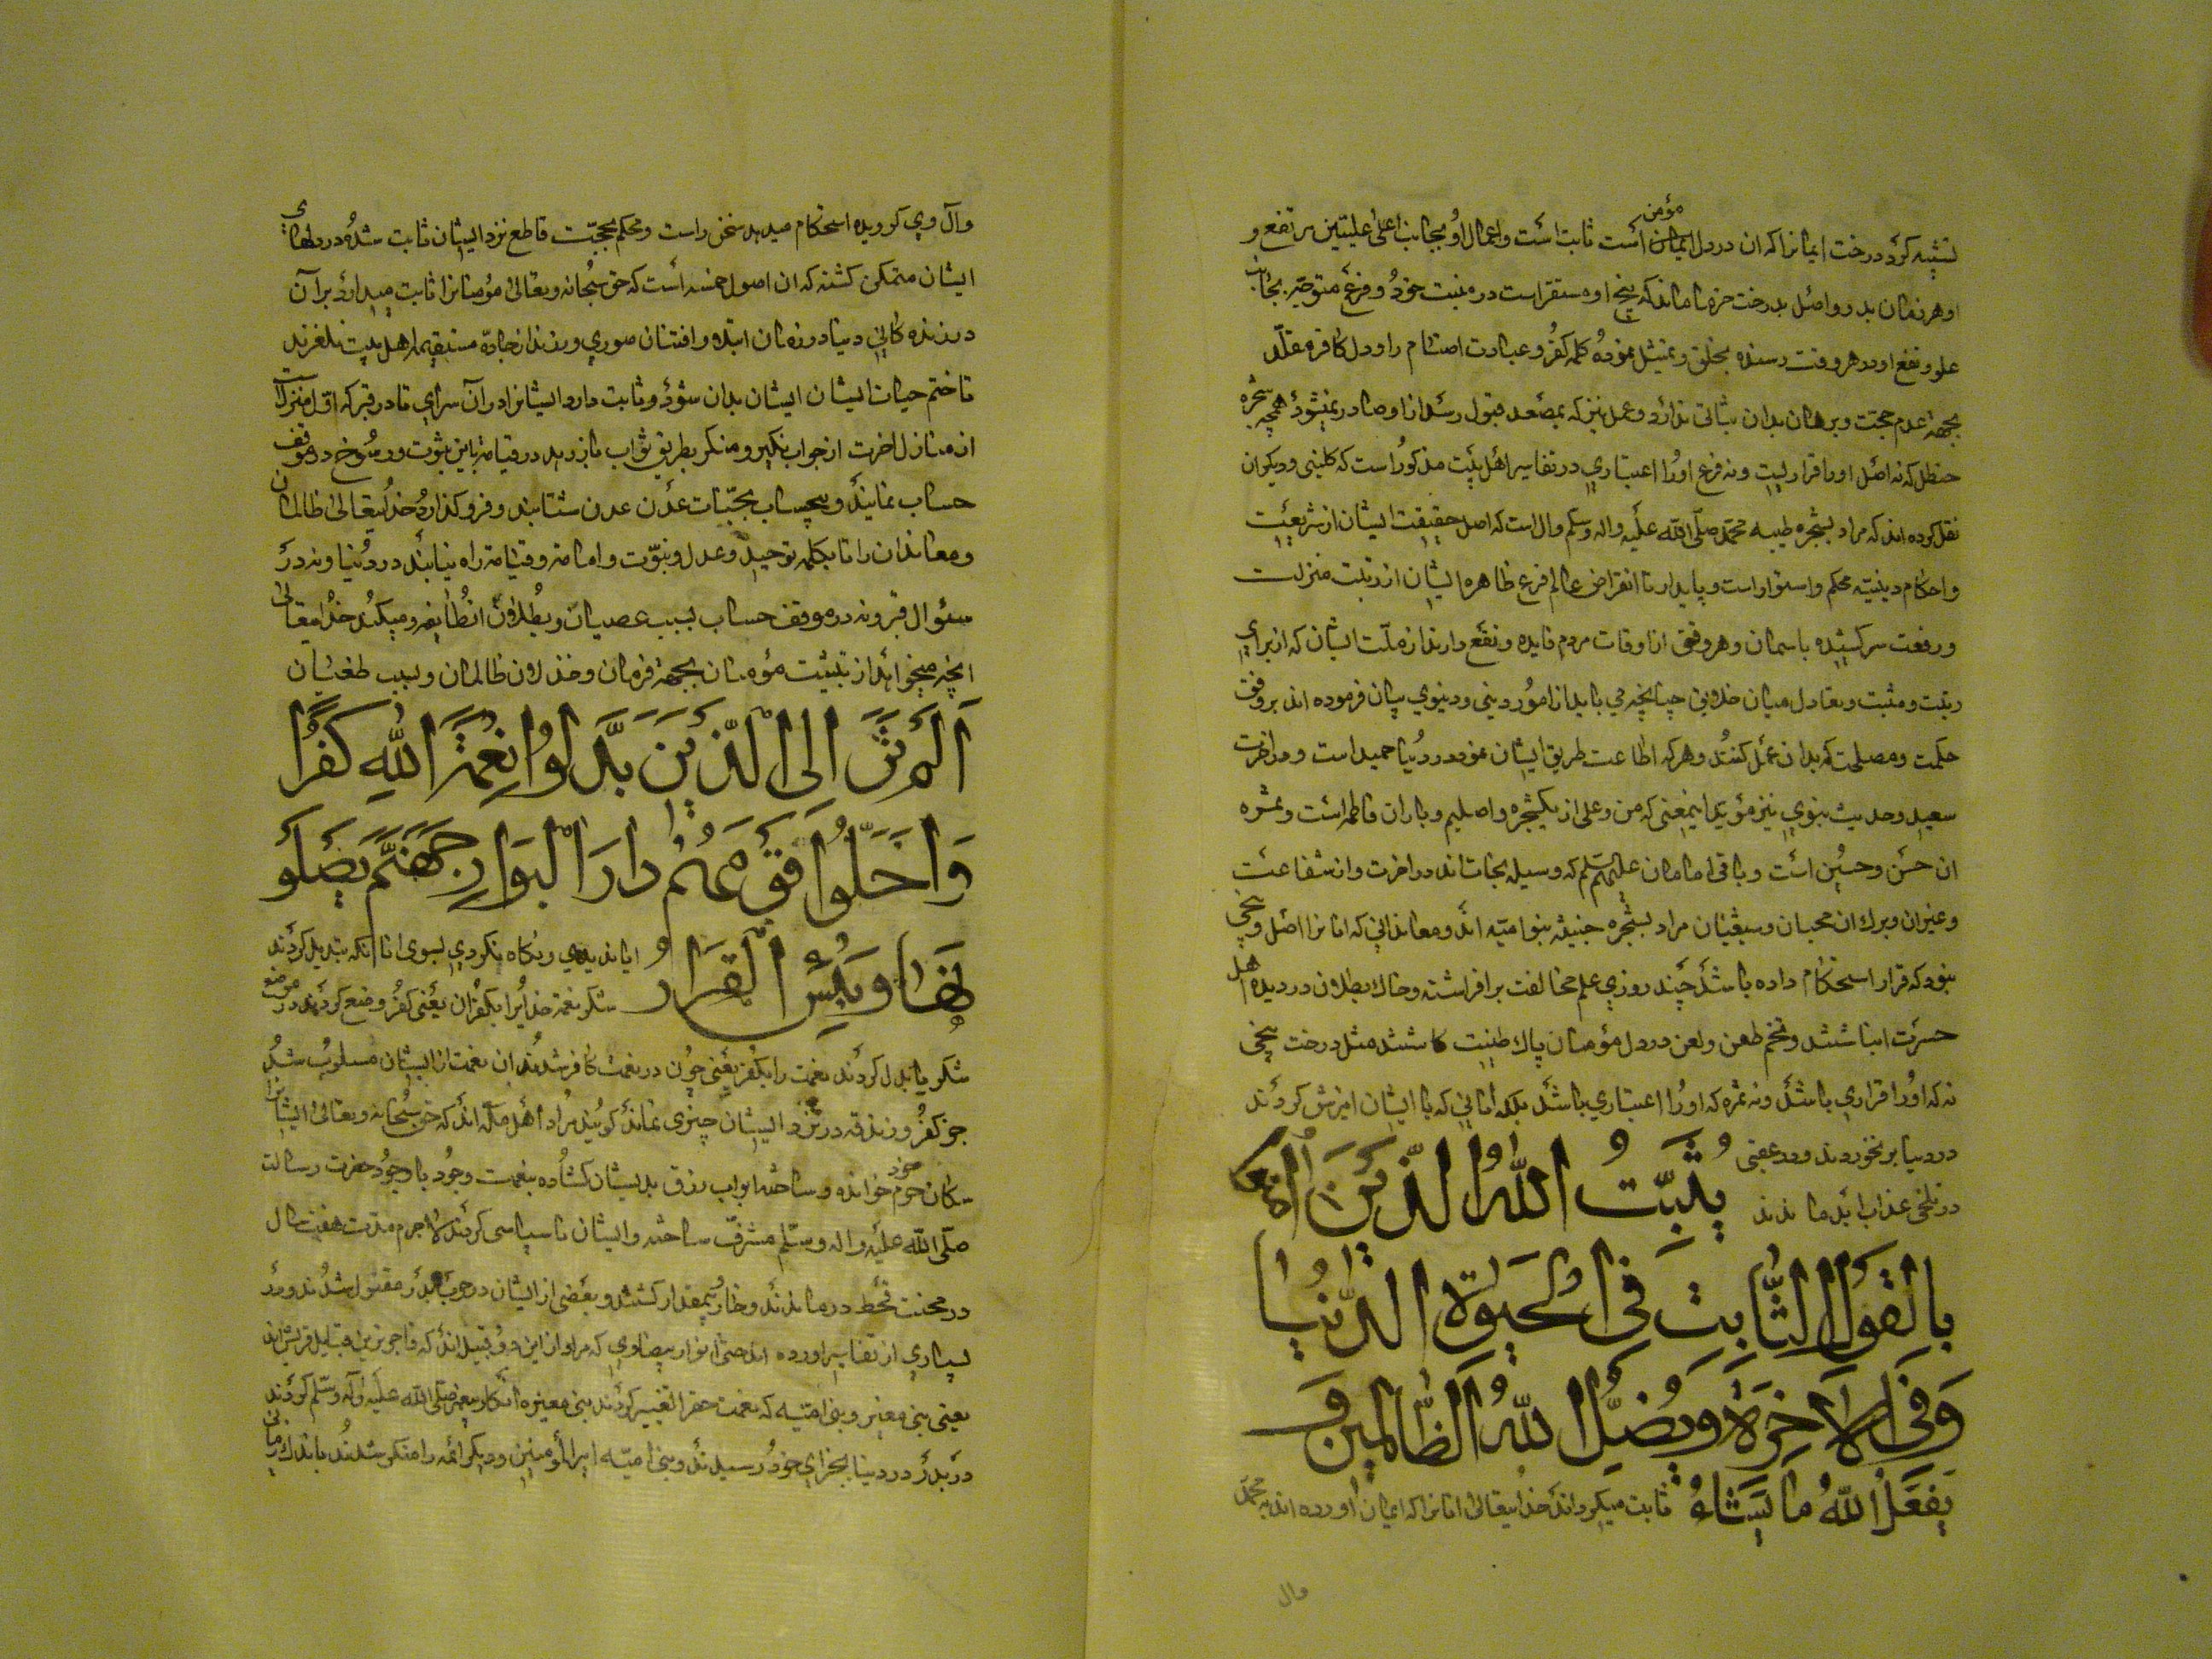 تشبیه کرد درخت ایمانرا که ان در دل مؤمن است ثابت است و اعمال او بجانب اعلی علیین مرتفع و
او هر زمان بدو واصل بدرخت خرما ماند که بیخ او مستقر است در منبت خود و فرع متوجه بجانب
علو و نفع او در هر وقت رسنده بخلق و تمثیل نموده کلمه کفر و عبادت اصنام را و دل کافر مقلد
بجهة عدم حجت و برهان بدان ثباتی ندارد و عمل نیز که بمصعد قبول رسد از او صادر نمیشود همچه شجره
حنظل که نه اصل اورا قراریست و نه فرع اورا اعتباری در تفاسیر اهل بیت مذکور است که کلینی و دیکران
نقل کرده اند که مراد بشجره طیبه محمد صلی الله علیه واله وسلم وال است که اصل حقیقت ایشان از شریعت
و احکام دینیه محکم و استوار است و پایدار تا انقراض عالم فرع ظاهره ایشان از رتبت منزلت
و رفعت سر کشیده باسمان و هر وقتی از اوقات مردم فایده و نفع دارند از ملت ایشان که از برای
ربت و مثبت و تعادل میان خلایق چنانچه می باید از امور دینی و دنیوی بیان فرموده اند بر وفق
حکمت و مصلحت که بدان عمل کنند و هر که اطاعت طریق ایشان نمود در دنیا حمید است و در اخرت
سعید و حدیث نبوی نیز مؤید اینمعنی که من و علی از یکشجره و اصلیم و باران فاطمه است و ثمره
ان حسن و حسین است و باقی امامان علیهم السلم که وسیله نجات اند در اخرت و از شفاعت
و عنبران و برك ان محبان و شیعیان مراد بشجره خبیثه بنو امیه اند و معاندانی که انانرا اصل و بیخی
نبود که قرار استحکام داده باشد چند روزی علم مخالفت بر افراشته و خاك بطلان در دیده اهل
حسرت انباشتند و تخم طعن و لعن در دل مؤمنان پاك طینت کاشتند مثل درخت بیخی
نه که اورا قراری باشد و نه ثمره که اورا اعتباری باشد بلکه انانی که با ایشان امیزش کردند
در دنیا بر نخوردند و در عقبی
در تلخی عذاب ابد ماندند
يُثَبِّتُ اللّٰهُ الَّذِينَ اٰمَنُوا
بِالْقَوْلِ الثَّابِتِ فِي الْحَيٰوةِ الدُّنْيَا
وَفِي الْاٰخِرَةِ وَيُضِلُّ اللّٰهُ الظَّالِمِينَ وَ
يَفْعَلُ اللّٰهُ مَا يَشَاءُ ثابت میکرداند خدایتعالی انانرا که ایمان اورده اند به محمد
وال
وآل وی کرویده استحکام میدهد سخن راست و محکم بحجت قاطع نزد ایشان ثابت شده در دلهای
ایشان متمکن کشته که ان اصول خمسه است که حق سبحانه و تعالی مؤمنانرا ثابت میدارد بر آن
در زنده کانی دنیا در زمان ابتلا و افتتان صوری و نذ از جادة مستقیمه اهل بیت نلغزند
تا ختم حیات ایشان ایشان بدان شود و ثابت دارد ایشانرا در آن سرای تا در قبر که اول منزلست
از منازل اخرت از جواب نکیر و منکر بطریق ثواب باز دهد در قیامة باین ثبوت و رسوخ در موقف
حساب نمایند و بیحساب بجنّات عدن عدن شتابند و فرو کذارد خدایتعالی ظالمان
و معاندان را تا بکلمه توحید و عدل و نبوّت و امامة و قیامة راه نیابند در دنیا و نه در
سئوال قبر و نه در موقف حساب بسبب عصیان و بطلان انطایفه و میکند خدایتعالی
انچه میخواهد از تثبیت مؤمنان بجهة فرمان و خذلان ظالمان و بسبب طغیان
اَلَمْ تَرَ اِلَى الَّذِينَ بَدَّلُوا نِعْمَةَ اللّٰهِ كُفْرًا
وَاَحَلُّوا قَوْمَهُمْ دَارَ الْبَوَارِ جَهَنَّمَ يَصْلَوْ
نَهَا وَبِئْسَ الْقَرَارُ ایا ندیدی و نکاه نکردی بسوی انانکه تبدیل کردند
شکر نعمة خدایرا بکفران یعنی کفر وضع کردند در موضع
شکر یا بدل کردند نعمت را بکفر یعنی چون در نعمت کافر شدند ان نعمت از ایشان مسلوب شد
جز کفر و زندقه در نزد ایشان چیزی نماند کویند مراد اهل مکه اند که حق سبحانه و تعالی ایشانرا
سکان حرم خود خوانده و ساخته ابواب رزق بدیشان کشاده بنعمت وجود با وجود حضرت رسالت
صلی الله علیه واله وسلم مشرف ساخته و ایشان ناسپاسی کردند لاجرم مدت هفت سال
در محنت قحط درماندند و خار و بیمقدار کشتند و بعضی از ایشان در حرب بدر مقتول شدند و در
بسیاری از تفاسیر اورده اند حتی انوار بیضاوی که مراد از این دو قبیله اند که فاجرترین قبایل قریش اند
یعنی بنی مغیره و بنی امیه که نعمت حق را تغییر کردند بنی مغیره انکار پیغمبر صلی الله علیه وآله وسلم کردند
در بدر در دنیا بجزای خود رسیدند و بنی امیه امیر المؤمنین و دیکر ائمه را منکر شدند باندك زمانی